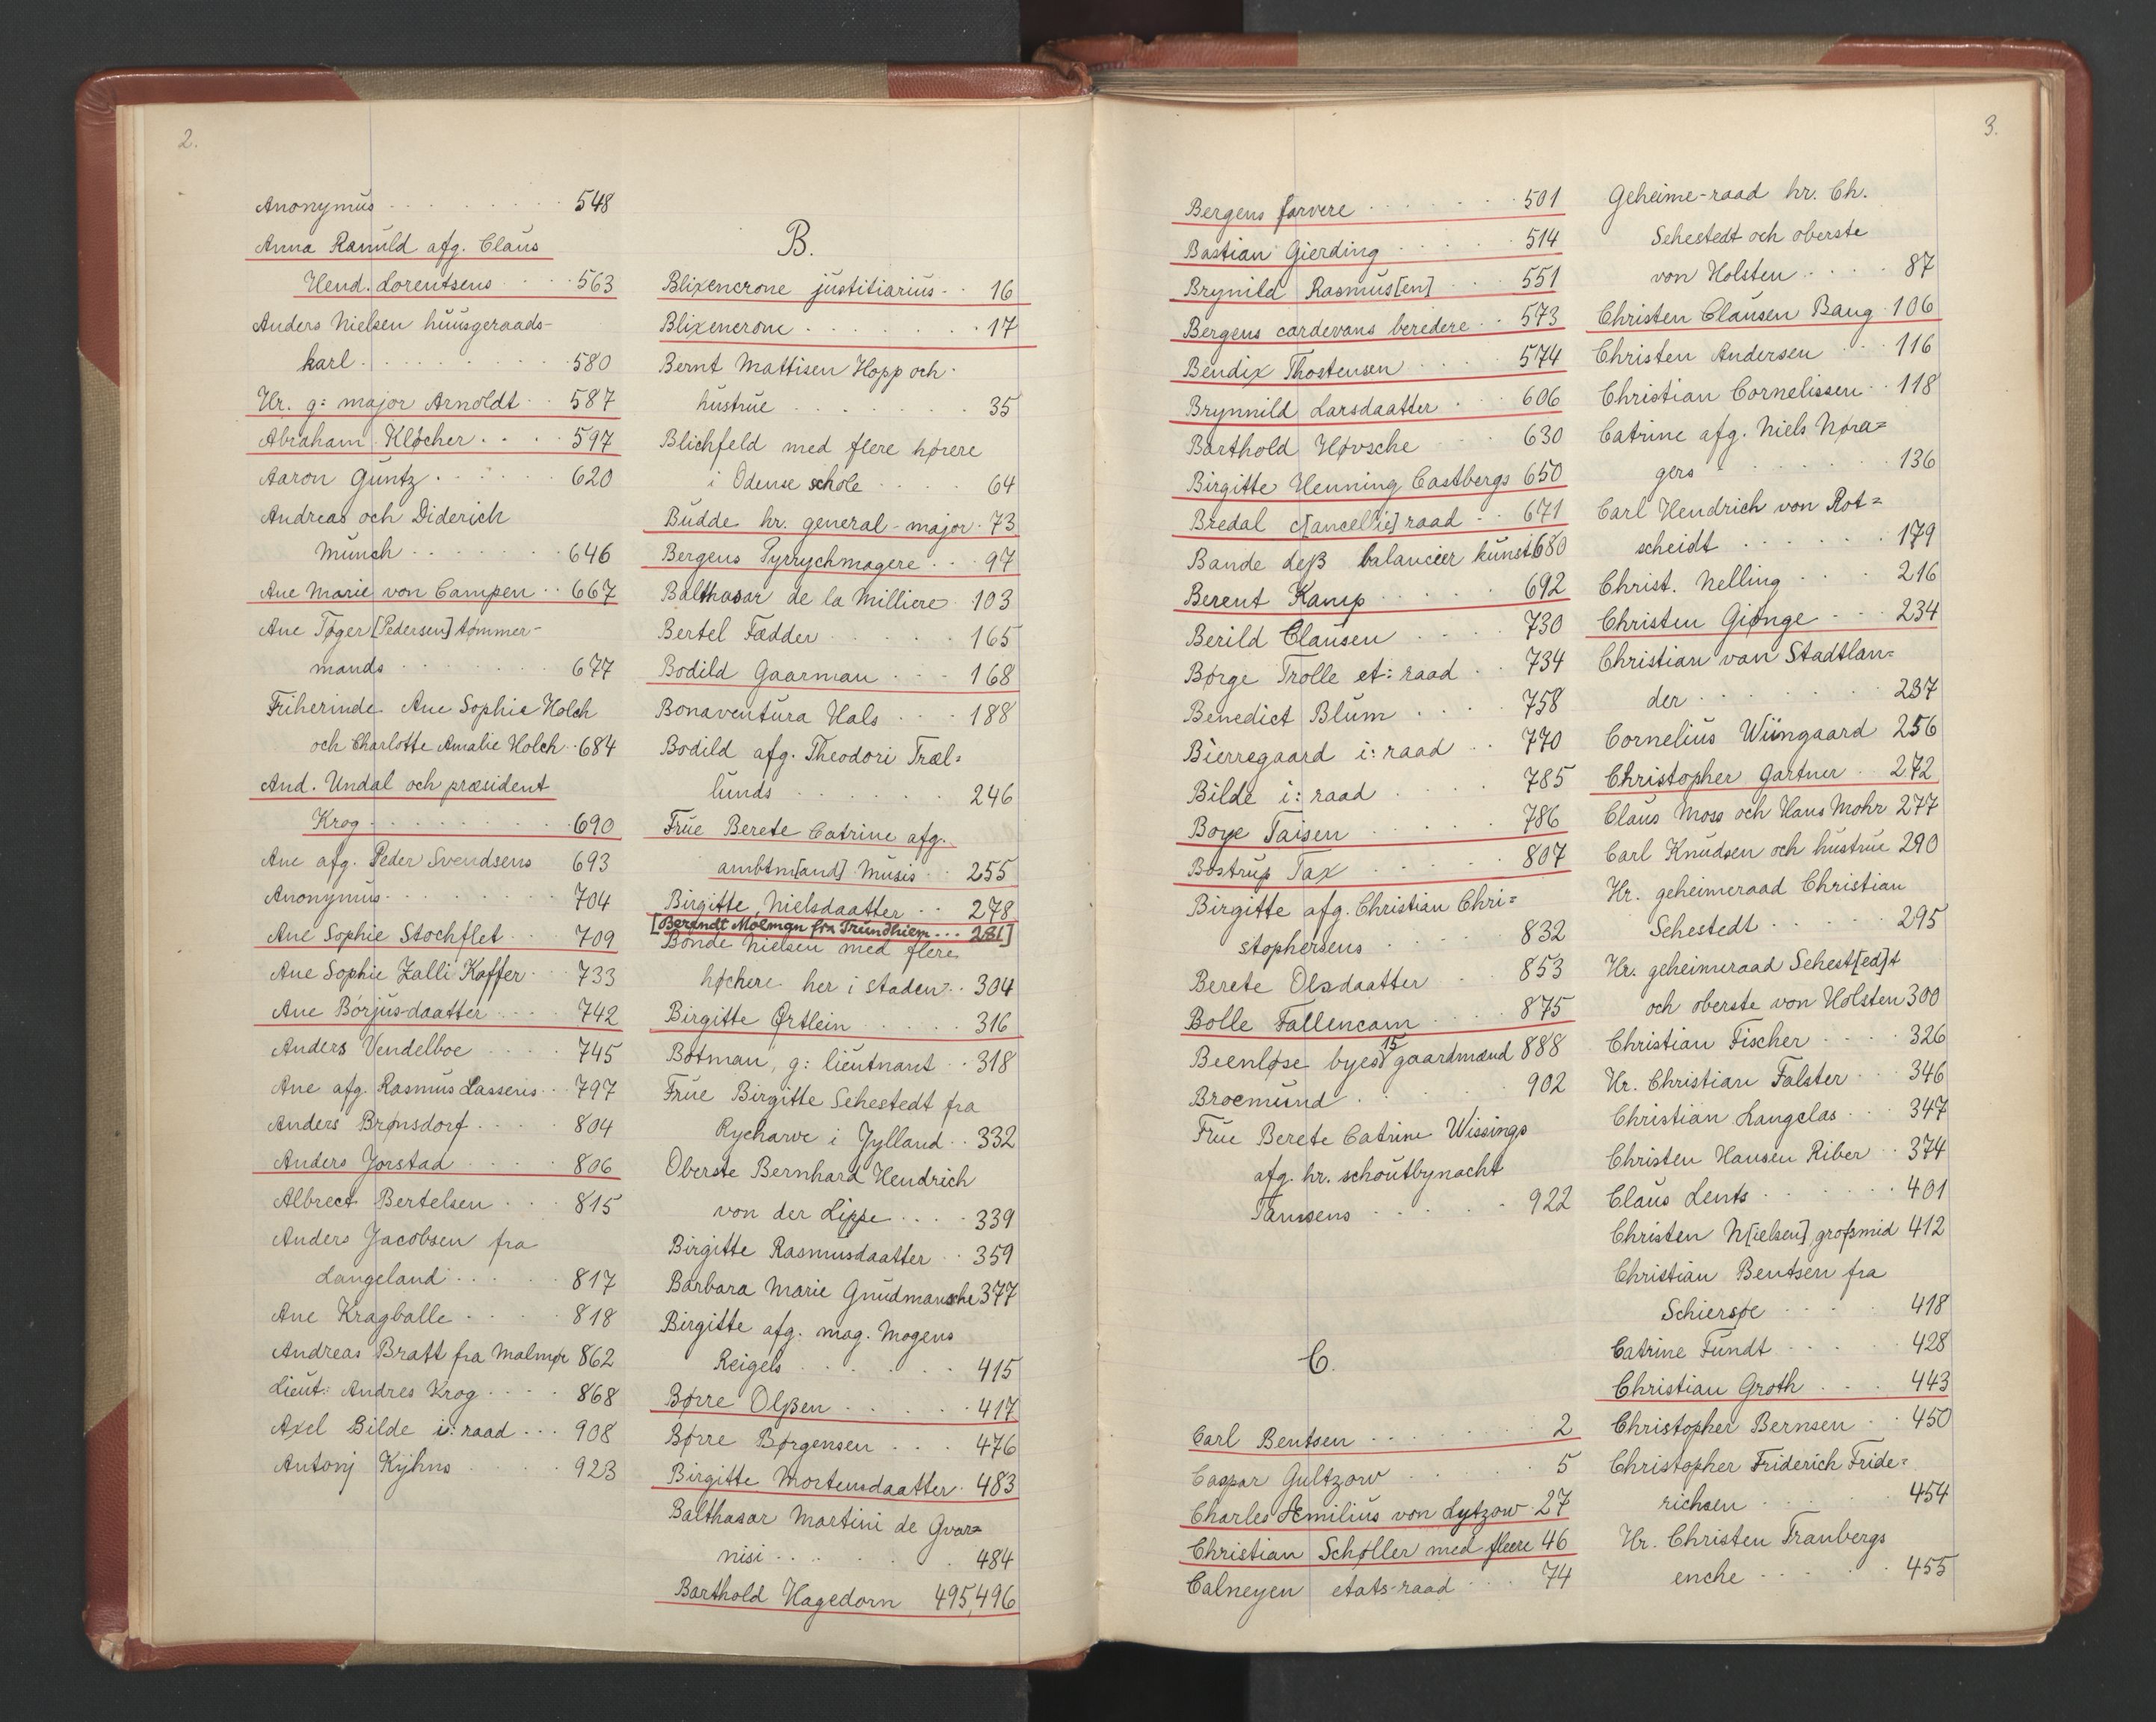 2.
Anonymus . . . . . . . . 548
Anna Ranuld afg. Claus
Hend. Lorentsens . . . . 563
Anders Nielsen huusgeraads-
karl . . . . . . . . . 580
Hr. g: major Arnoldt . . 587
Abraham Kløcher . . . . 597
Aaron Guntz . . . . . . 620
Andreas och Diderich
Munch . . . . . . . 646
Ane Marie von Campen . . 667
Ane Tøger [Pedersen] tømmer-
mands . . . . . . . 677
Friherinde Ane Sophie Holch
och Charlotte Amalie Holch . . 684
And. Undal och præsident
Krog . . . . . . . . . 690
Ane afg. Peder Svendsens 693
Anonymus . . . . . . . . 704
Ane Sophie Stochflet . . . 709
Ane Sophie Zalli Kaffer . . . 733
Ane Børjusdaatter . . . . 742
Anders Vendelboe . . . . 745
Ane afg. Rasmus Lasseris . . . 797
Anders Brønsdorf . . . . . 804
Anders Jorstad . . . . . 806
Albrect Bertelsen . . . . 815
Anders Jacobsen fra
Langeland . . . . . . 817
Ane Kragballe . . . . . 818
Andreas Bratt fra Malmøe 862
Lieut: Andres Krog . . . . 868
Axel Bilde i: raad . . . 908
Antonj Kyhns . . . . . 923
B.
Blixencrone justitiarius . . 16
Blixencrone . . . . . . . . 17
Bernt Mattisen Hopp och
hustrue . . . . . . . . 35
Blichfeld med flere hørere
i Odense schole . . . . 64
Budde hr. general-major . 73
Bergens Pyrrychmagere . . . 97
Balthasar de la Milliere 103
Bertel Fædder . . . . . . 165
Bodild Gaarman . . . 168
Bonaventura Hals . . . 188
Bodild afg. Theodori Træl=
lunds . . . . . . . 246
Frue Berete Catrine afg.
ambtm[and] Musis . . 255
Birgitte Nielsdaatter . . 278
[Berendt Mølman fra Trundhiem . . . 281]
Bonde Nielsen med flere
høchere her i staden . . 304
Birgitte Ørtlein . . . . . 316
Botman, g: lieutnant . . 318
Frue Birgitte Sehestedt fra
Rycharve i Jylland . . 332
Oberste Bernhard Hendrich
von der Lippe . . . . 339
Birgitte Rasmusdaatter . . 359
Barbara Marie Gnudmansche 377
Birgitte afg. mag. Mogens
Reigels . . . . . . . 415
Børre Olßen . . . . . . 417
Børre Børgensen . . . 476
Birgitte Mortensdaatter . 483
Balthasar Martini de Gvar=
nisi . . . . . . . . 484
Barthold Hagedorn 495,496
3.
Bergens farvere . . . . . . . 501
Bastian Gierding . . . . . 514
Brynild Rasmus[en] . . . 551
Bergens cardevans beredere . . 573
Bendix Thostensen . . . . 574
Brynnild Larsdaatter . . . 606
Barthold Høvsche . . . 630
Birgitte Henning Castbergs 650
Bredal c[ancellie] raad . . 671
Bande deß balancier kunst 680
Berent Kamp . . . . . 692
Berild Clausen . . . . 730
Børge Trolle et: raad . . 734
Benedict Blum . . . . 758
Bierregaard i: raad . . 770
Bilde i: raad . . . . . 785
Boye Taisen . . . . . . 786
Bostrup Tax . . . . . . 807
Birgitte afg. Christian Chri=
stophersens . . . . . 832
Berete Olsdaatter . . 853
Bolle Fallencam . . . . 875
Beenløse byes 15 gaardmænd 888
Brocmund . . . . . 902
Frue Berete Catrine Wissings
afg. hr. schoutbynacht
Tamsens . . . . . . 922
C.
Carl Bentsen . . . . . . . 2
Caspar Gultzow . . . . . . 5
Charles Æmilius von Lytzow . 27
Christian Schøller med fleere 46
Calneyen etats-raad . . . 74
Geheime-raad hr. Ch.
Sehestedt och oberste
von Holsten . . . . 87
Christen Clausen Baug 106
Christen Andersen . . . 116
Christian Cornelissen . . 118
Catrine afg. Niels Nøra=
gers . . . . . . . 136
Carl Hendrich von Rot=
scheidt . . . . . . 179
Christ. Nelling . . . 216
Christen Giønge . . . 234
Christian van Stadtlan=
der . . . . . . . . 237
Cornelius Wiingaard 256
Christopher Gartner . 272
Claus Moss och Hans Mohr 277
Carl Knudsen och hustrue 290
Hr. geheimeraad Christian
Sehestedt . . . . . 295
Hr. geheimeraad Sehest[ed]t
och oberste von Holsten 300
Christian Fischer . . . . 326
Hr. Christian Falster . . . 346
Christian Langelas . . . 347
Christen Hansen Riber . . 374
Claus Lents . . . . . . . 401
Christen N[ielsen] grofsmid 412
Christian Bentsen fra
Schiersøe . . . . 418
Catrine Fundt . . . . . 428
Christian Groth . . . 443
Christopher Bernsen . . 450
Christopher Friderich Fride=
richsen . . . . . . 454
Hr. Christen Tranbergs
enche . . . . . 455